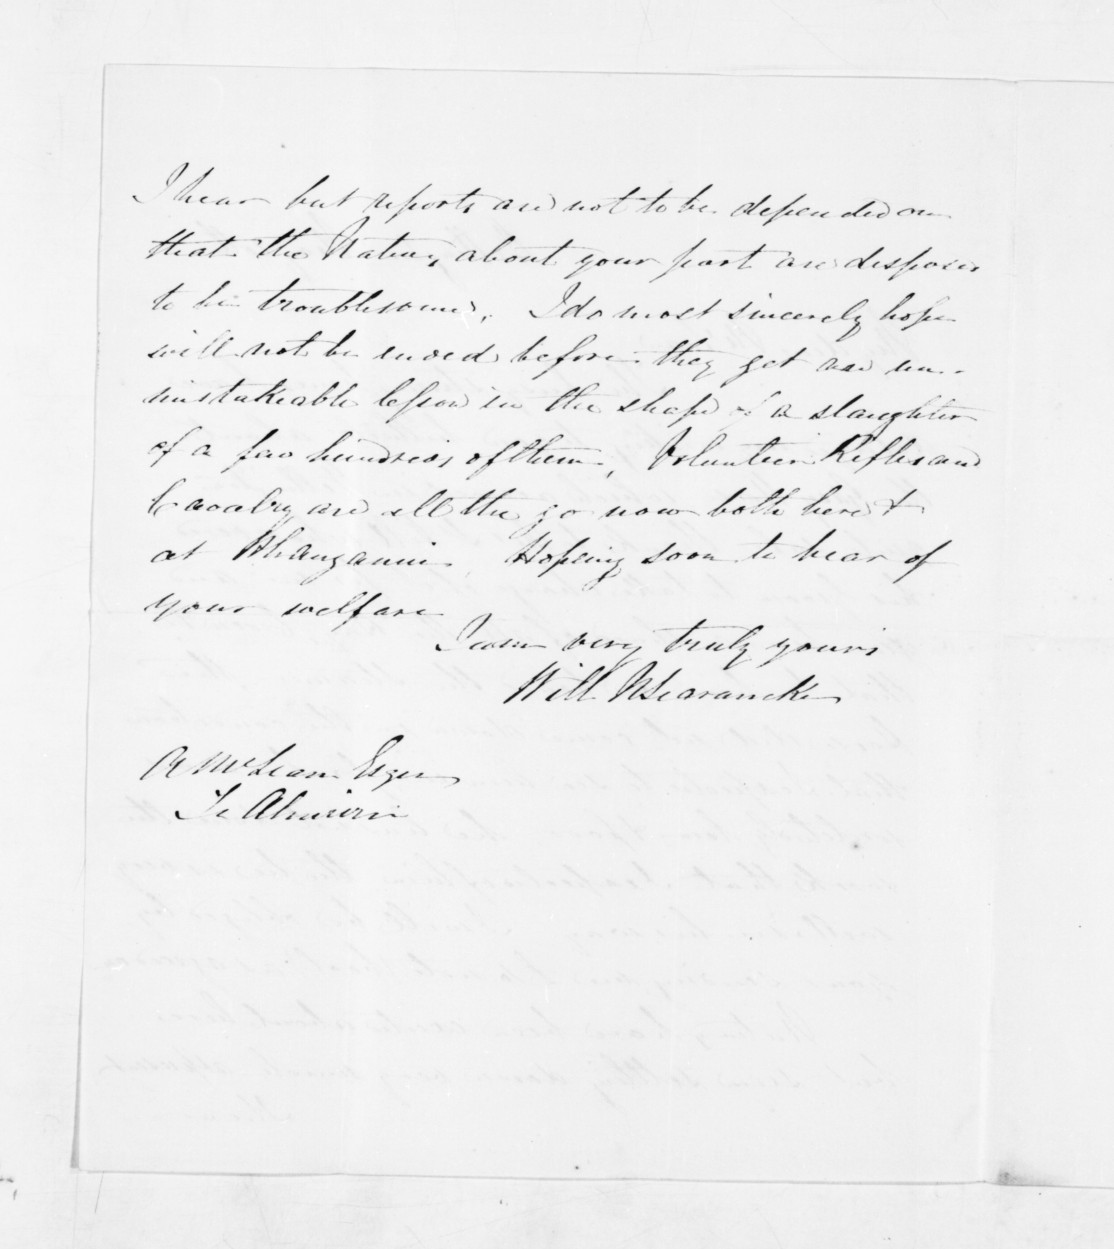 I hear but reports are not to be depended on
that the Natives about your part are disposed
to be troublesome. I do most sincerely hope
will not be ended before they get one un-
mistakeable lesson in the shape of a slaughter
of a few hundreds of them. Volunteer Rifles and
Cavalry are all the go now both here &
at Whanganui. Hoping soon to hear of
your welfare
I am very truly yours
Will N Searancke
McLean Esqre
Te Ahuriri